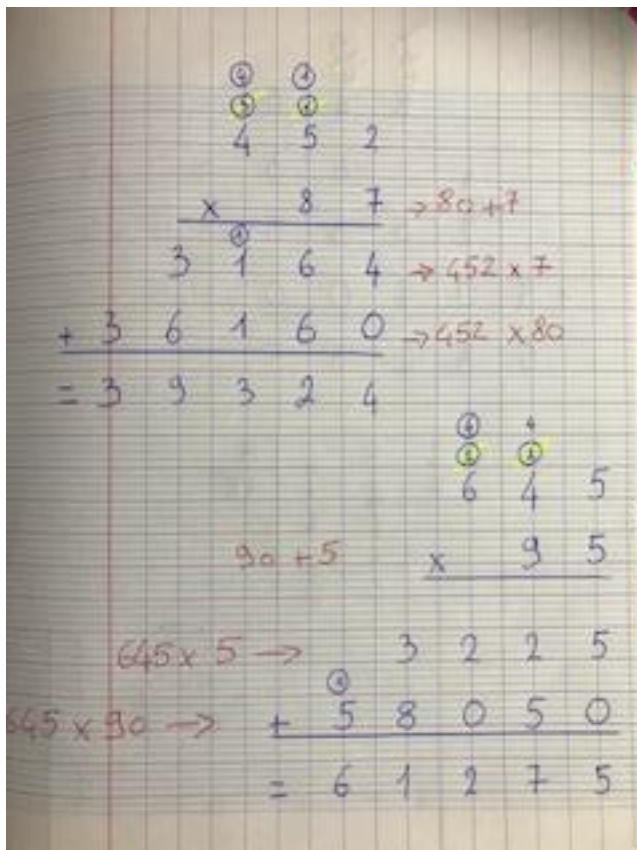 4 1
3 1
4 5 2
x 8 7 → 80 + 7
1
3 1 6 4 → 452 x 7
+ 3 6 1 6 0 → 452 x 80
= 3 9 3 2 4
4 4
2 2
6 4 5
90 + 5 x 9 5
645 x 5 → 3 2 2 5
1
645 x 90 → + 5 8 0 5 0
= 6 1 2 7 5